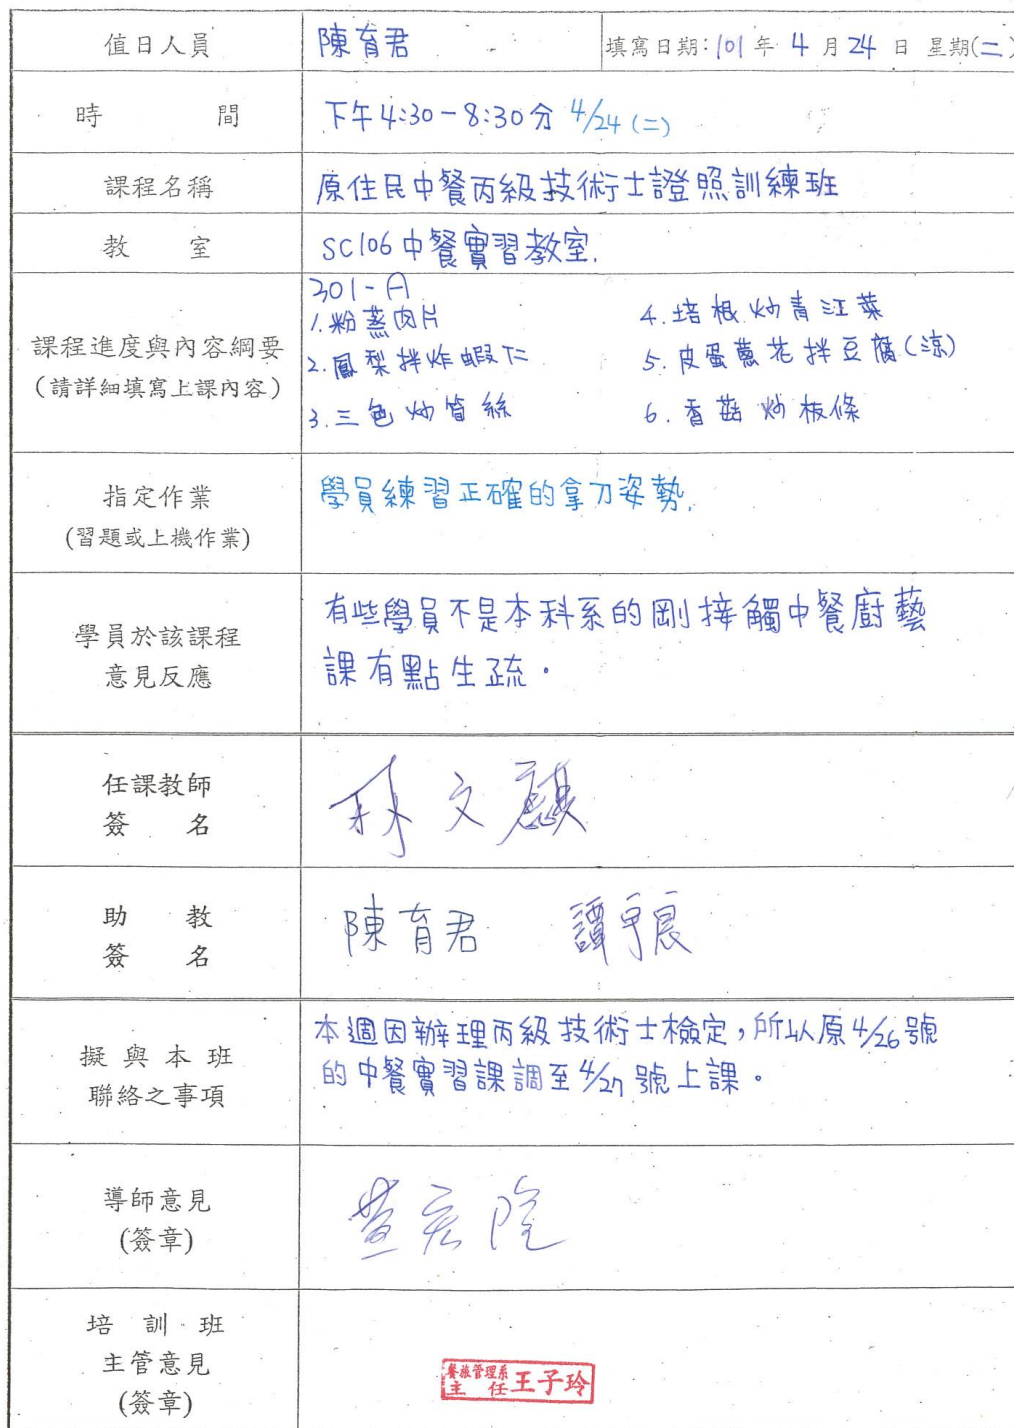 值日人員 陳育君 填寫日期:101年4月24日 星期(二)
時 間 下午4:30-8:30分 4/24(二)
課程名稱 原住民中餐丙級技術士證照訓練班
教 室 SC106中餐實習教室.
301-A
1.粉蒸肉片 4.培根炒青江菜
課程進度與內容綱要
(請詳細填寫上課內容)
2.鳳梨拌炸蝦仁 5.皮蛋蔥花拌豆腐(涼)
3.三色炒筍絲 6.香菇炒板條
指定作業
(習題或上機作業)
學員練習正確的拿刀姿勢.
學員於該課程
意見反應
有些學員不是本科系的剛接觸中餐廚藝
課有點生疏。
任課教師
簽 名
林文麒
助 教
簽 名
陳育君 譚
擬與本班
聯絡之事項
本週因辦理丙級技術士檢定,所以原4/26號
的中餐實習課調至4/27號上課。
導師意見
(簽章)
培訓班
主管意見
(簽章)
餐旅管理系
主 任 王子玲